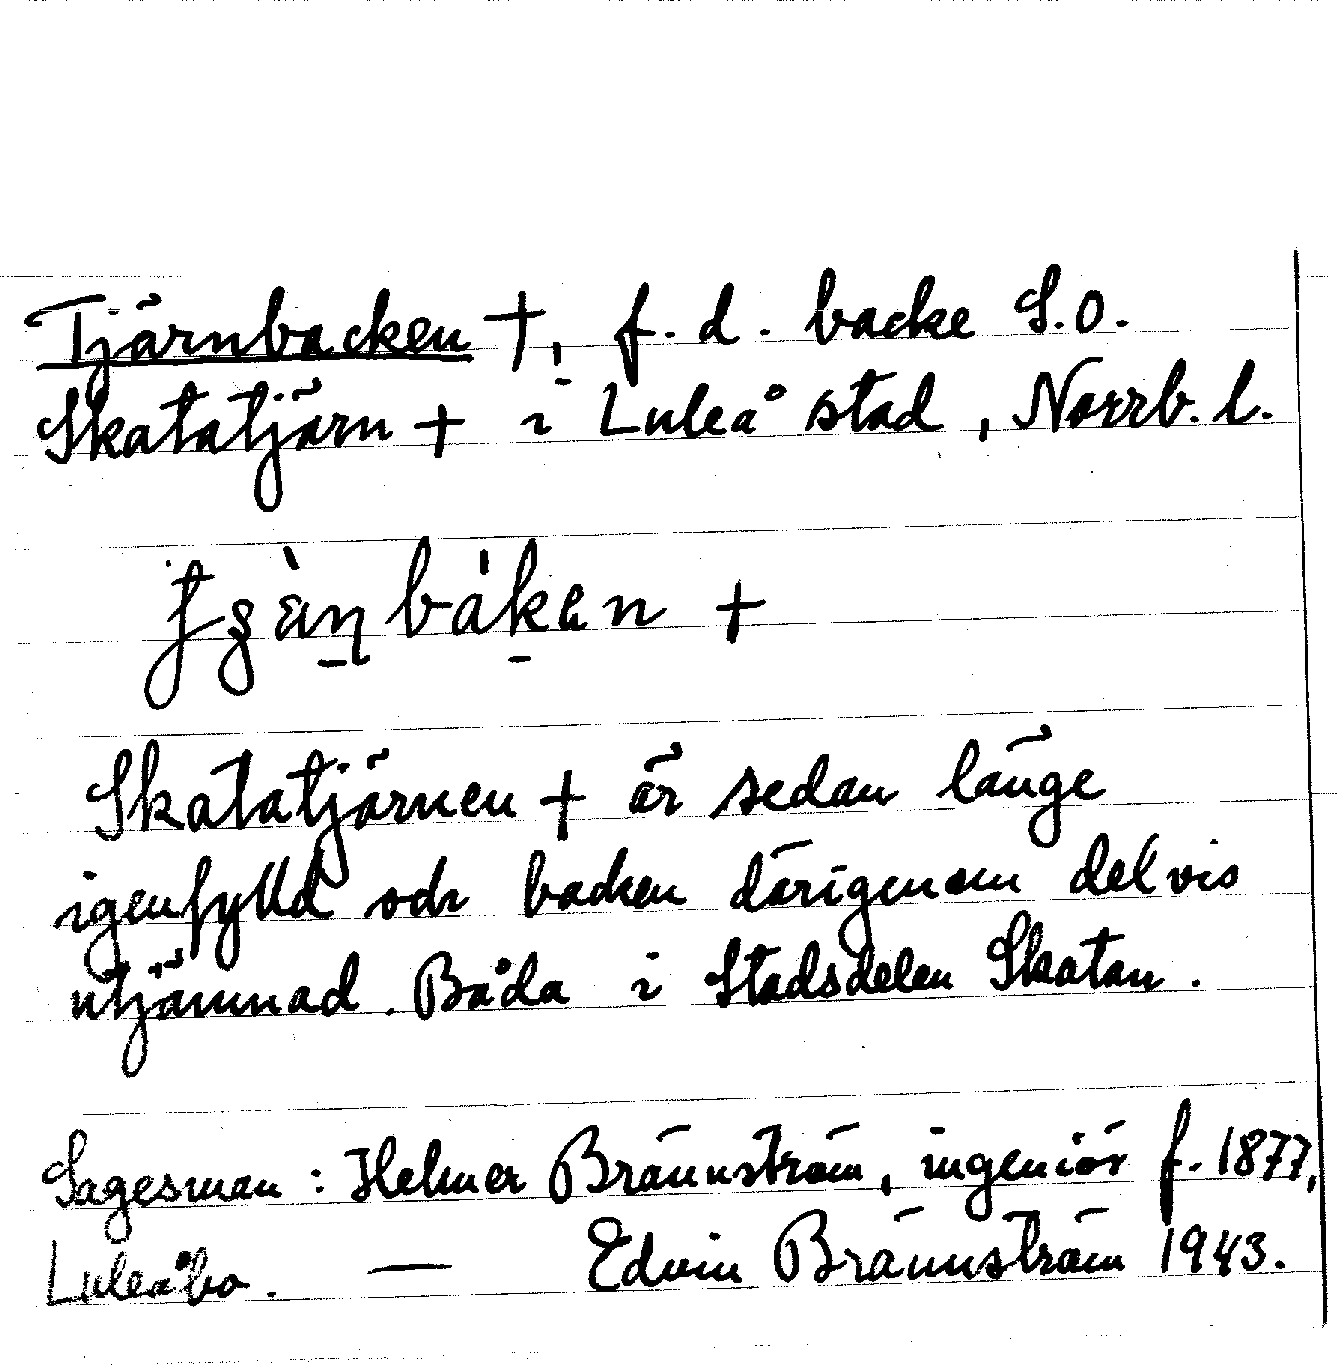 Tjärnbacken †, f. d. backe S.O.
Skatatjärn † i Luleå stad, Norrb. l.
†
Skatatjärnen † är sedan länge
igenfylld och backen därigenom delvis
utjämnad. Båda i Stadsdelen Skatan.
Sagesman: Helmer Brännström, ingeniör f. 1877,
Luleåbo. — Edvin Brännström 1943.